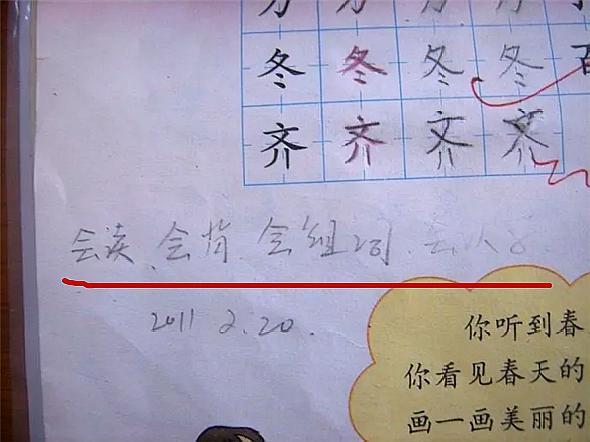 冬 冬 冬 冬
齐 齐 齐 齐
会读、会背、会组词、会
2011 2.20.
你听到春
你看见春天的
画一画美丽的